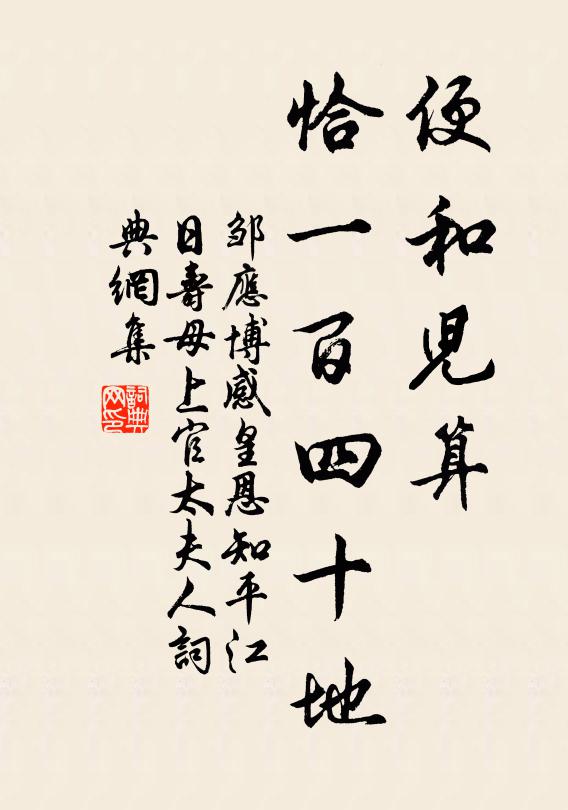 便和児算
恰一百四十地
邹應博感皇恩知平江
日壽母上官太夫人詞
典網集
詞典网印